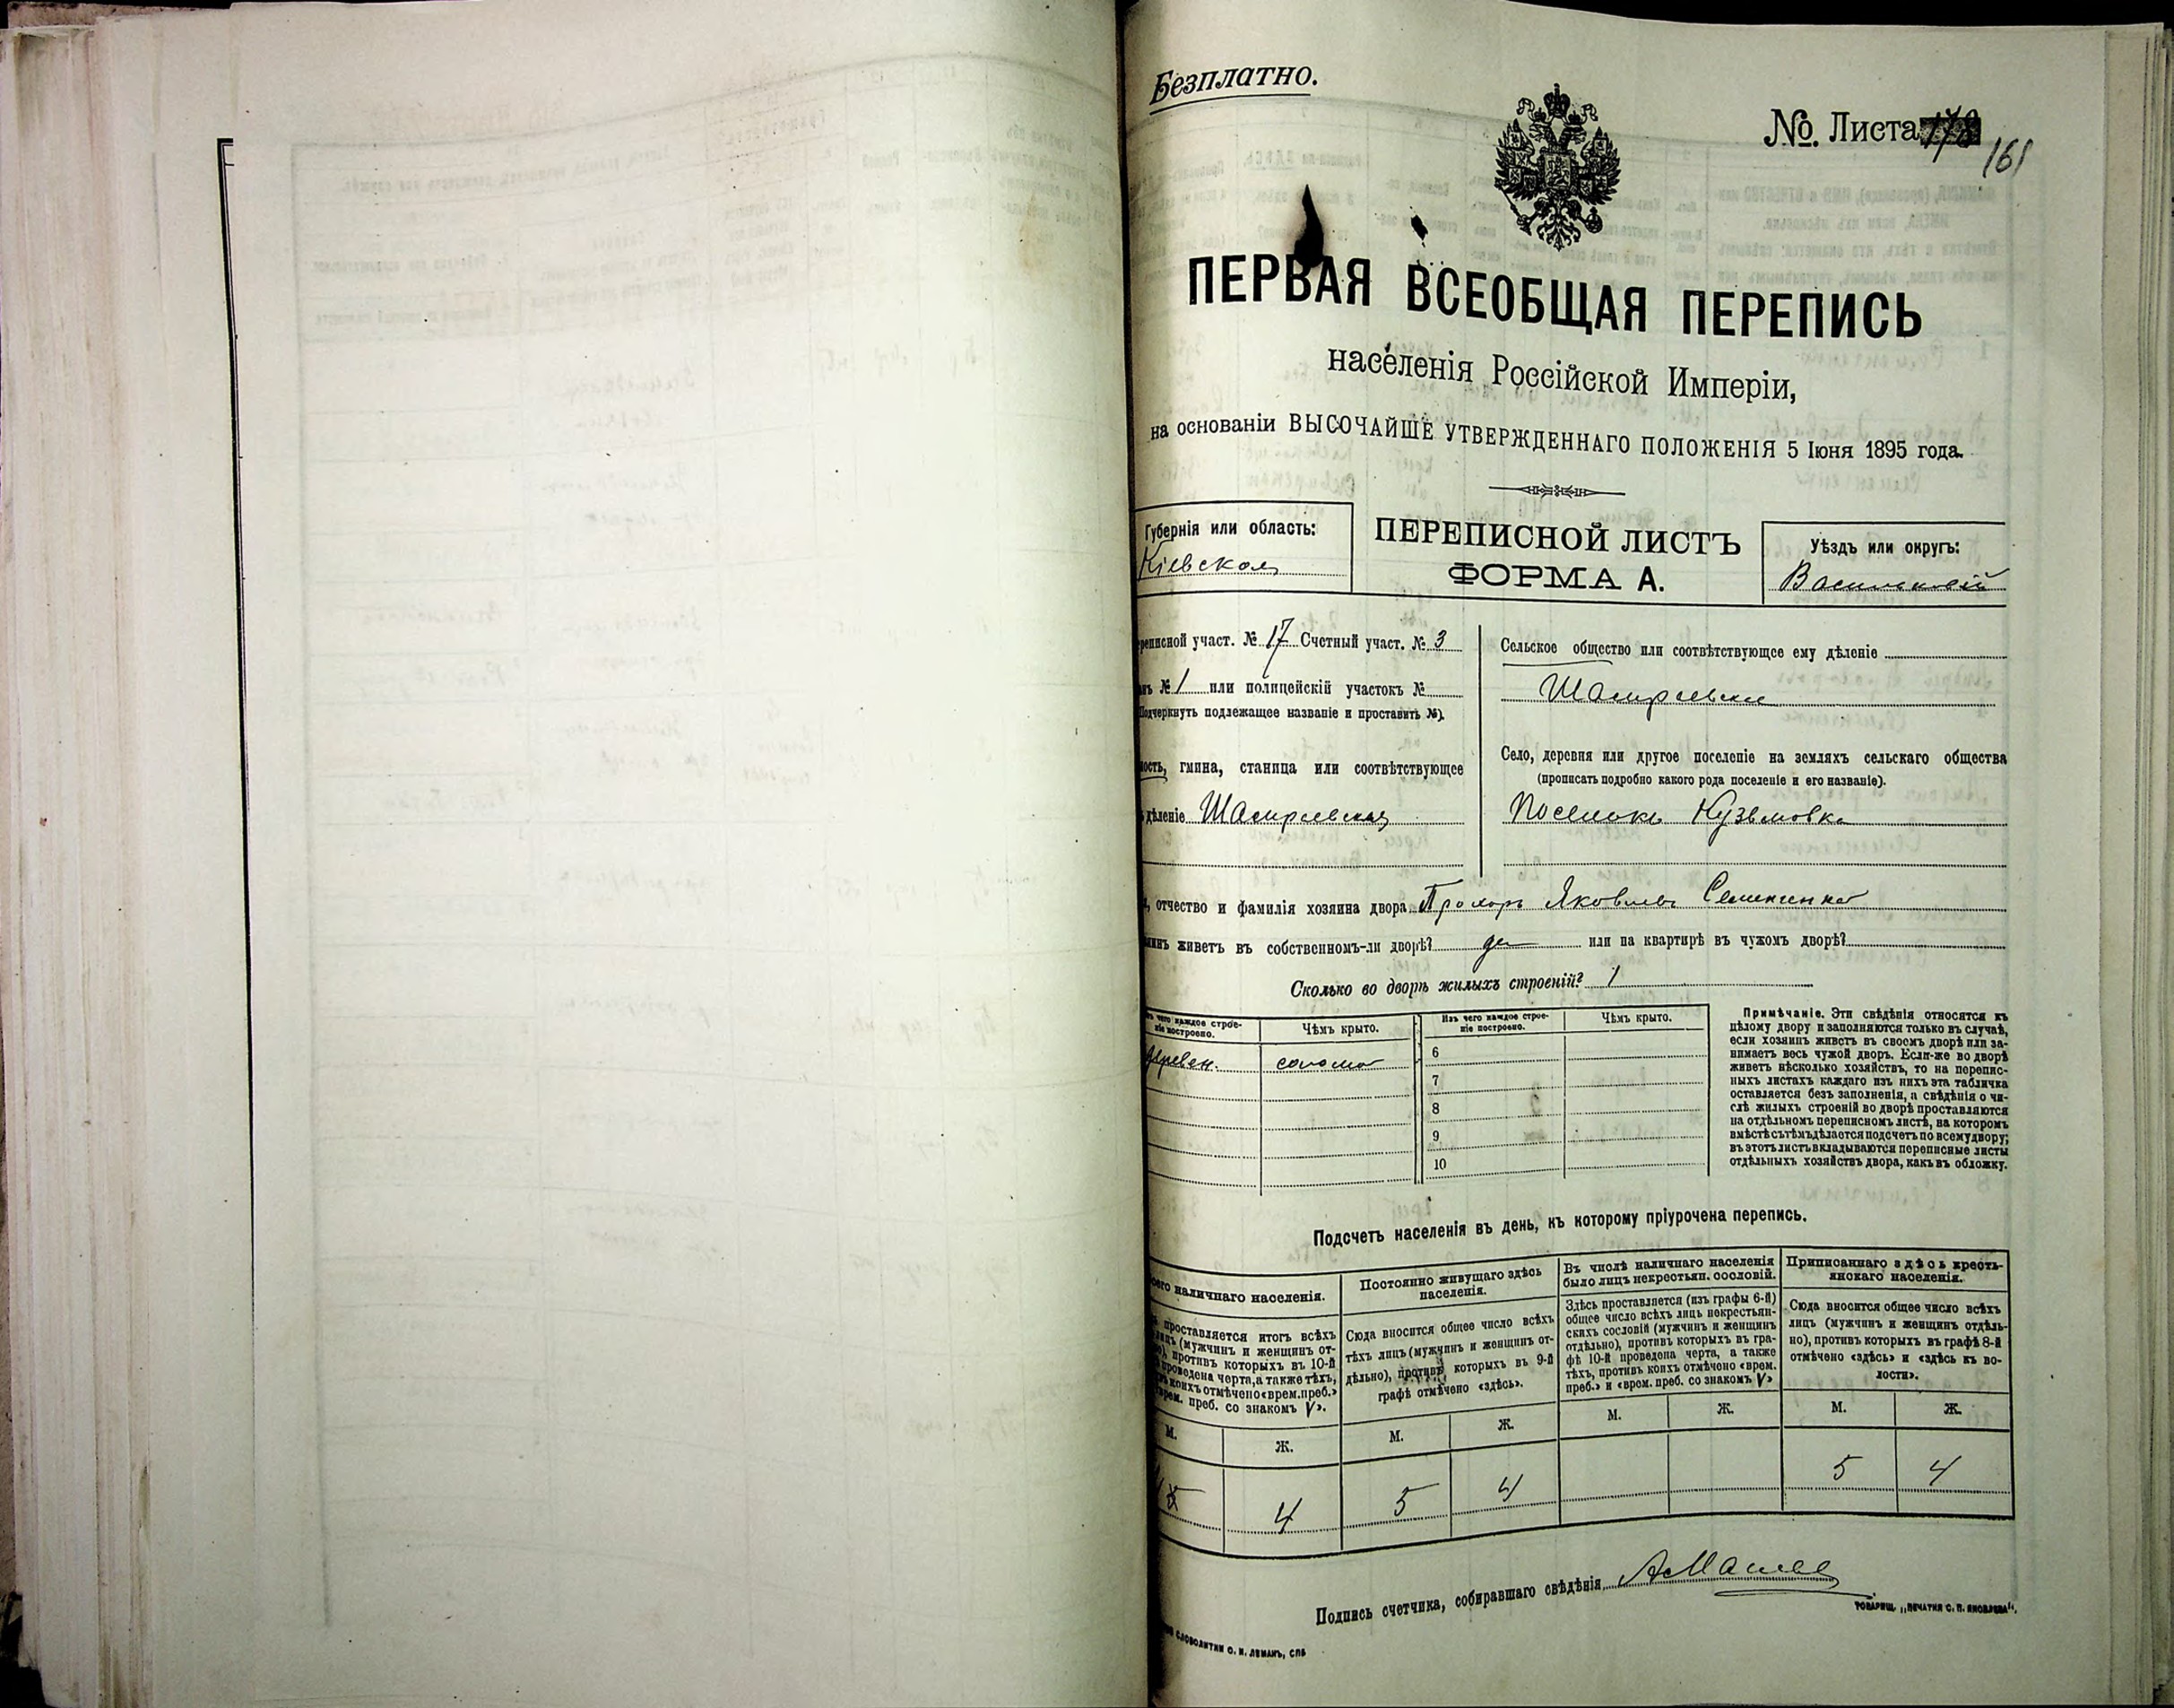 Безплатно.
№ Листа 161
ПЕРВАЯ ВСЕОБЩАЯ ПЕРЕПИСЬ
населенія Россійской Имперіи,
на основаніи ВЫСОЧАЙШЕ УТВЕРЖДЕННАГО ПОЛОЖЕНІЯ 5 Іюня 1895 года.
Губернія или область:
Кіевская
ПЕРЕПИСНОЙ ЛИСТЪ
ФОРМА А.
Уѣздъ или округъ:
Васильковскій
реписной участ. № 17 Счетный участ. № 3
нъ № 1 или полицейскій участокъ №
Подчеркнуть подлежащее названіе и проставить №).
ность, гмина, станица или соотвѣтствующее
дѣленіе Шамраевская
Сельское общество или соотвѣтствующее ему дѣленіе
Шамраевское
Село, деревня или другое поселеніе на земляхъ сельскаго общества
(прописать подробно какого рода поселеніе и его названіе).
Поселокъ Кузьмовка
, отчество и фамилія хозяина двора Прохоръ Яковлевъ Семененко
инъ живетъ въ собственномъ-ли дворѣ? да или на квартирѣ въ чужомъ дворѣ?
Сколько во дворѣ жилыхъ строеній? 1
чего каждое строе-
ніе построено.
Чѣмъ крыто.
Изъ чего каждое строе-
ніе построено.
Чѣмъ крыто.
Деревен. солома
6
7
8
9
10
Примѣчаніе. Эти свѣдѣнія относятся къ
цѣлому двору и заполняются только въ случаѣ,
если хозяинъ живетъ въ своемъ дворѣ или за-
нимаетъ весь чужой дворъ. Если-же во дворѣ
живетъ нѣсколько хозяйствъ, то на перепис-
ныхъ листахъ каждаго изъ нихъ эта табличка
оставляется безъ заполненія, а свѣдѣнія о чи-
слѣ жилыхъ строеній во дворѣ проставляются
на отдѣльномъ переписномъ листѣ, на которомъ
вмѣстѣ съ тѣмъ дѣлается подсчетъ по всему двору;
въ этотъ листъ вкладываются переписные листы
отдѣльныхъ хозяйствъ двора, какъ въ обложку.
Подсчетъ населенія въ день, къ которому пріурочена перепись.
сего наличнаго населенія.
проставляется итогъ всѣхъ
лицъ (мужчинъ и женщинъ от-
), противъ которыхъ въ 10-й
проведена черта, а также тѣхъ,
коихъ отмѣчено «врем. преб.»
врем. преб. со знакомъ V».
М.
Ж.
5
4
Постоянно живущаго здѣсь
населенія.
Сюда вносится общее число всѣхъ
тѣхъ лицъ (мужчинъ и женщинъ от-
дѣльно), противъ которыхъ въ 9-й
графѣ отмѣчено «здѣсь».
М.
Ж.
5
4
Въ числѣ наличнаго населенія
было лицъ некрестьян. сословій.
Здѣсь проставляется (изъ графы 6-й)
общее число всѣхъ лицъ некрестьян-
скихъ сословій (мужчинъ и женщинъ
отдѣльно), противъ которыхъ въ гра-
фѣ 10-й проведена черта, а также
тѣхъ, противъ коихъ отмѣчено «врем.
преб.» и «врем. преб. со знакомъ V»
М.
Ж.
Приписаннаго здѣсь кресть-
янскаго населенія.
Сюда вносится общее число всѣхъ
лицъ (мужчинъ и женщинъ отдѣль-
но), противъ которыхъ въ графѣ 8-й
отмѣчено «здѣсь» и «здѣсь къ во-
лости».
М.
Ж.
5
4
Подпись счетчика, собиравшаго свѣдѣнія
СЛОВОЛИТНИ О. И. ЛЕМАНЪ, СПБ
ТОВАРИЩ. „ПЕЧАТНЯ С. П. ЯКОВЛЕВА“.